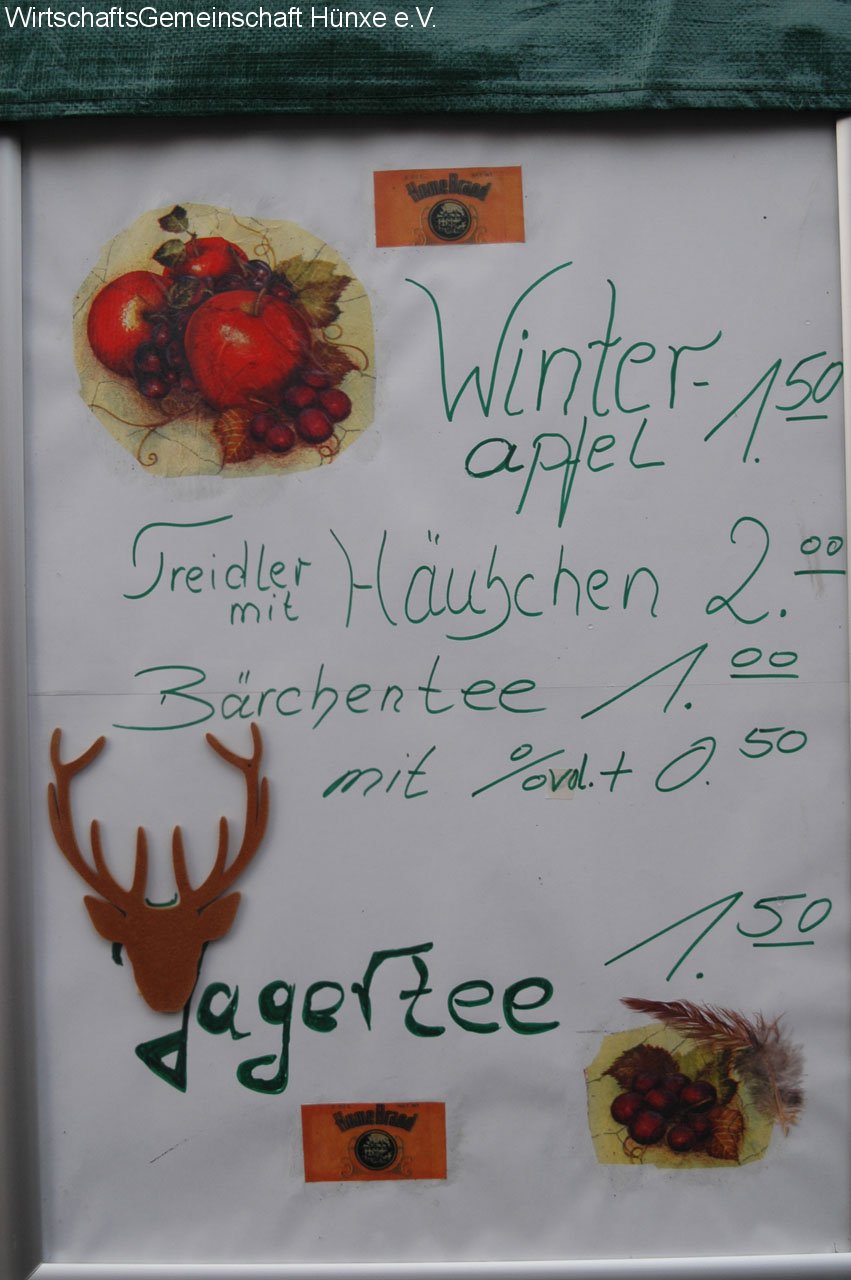 WirtschaftsGemeinschaft Hünxe e.V.
HomeBrand
Winter-
apfel 1.50
Treidler
mit Häubchen 2.00
Bärchentee 1.00
mit %vol.+ 0.50
1.50
Jagertee
HomeBrand